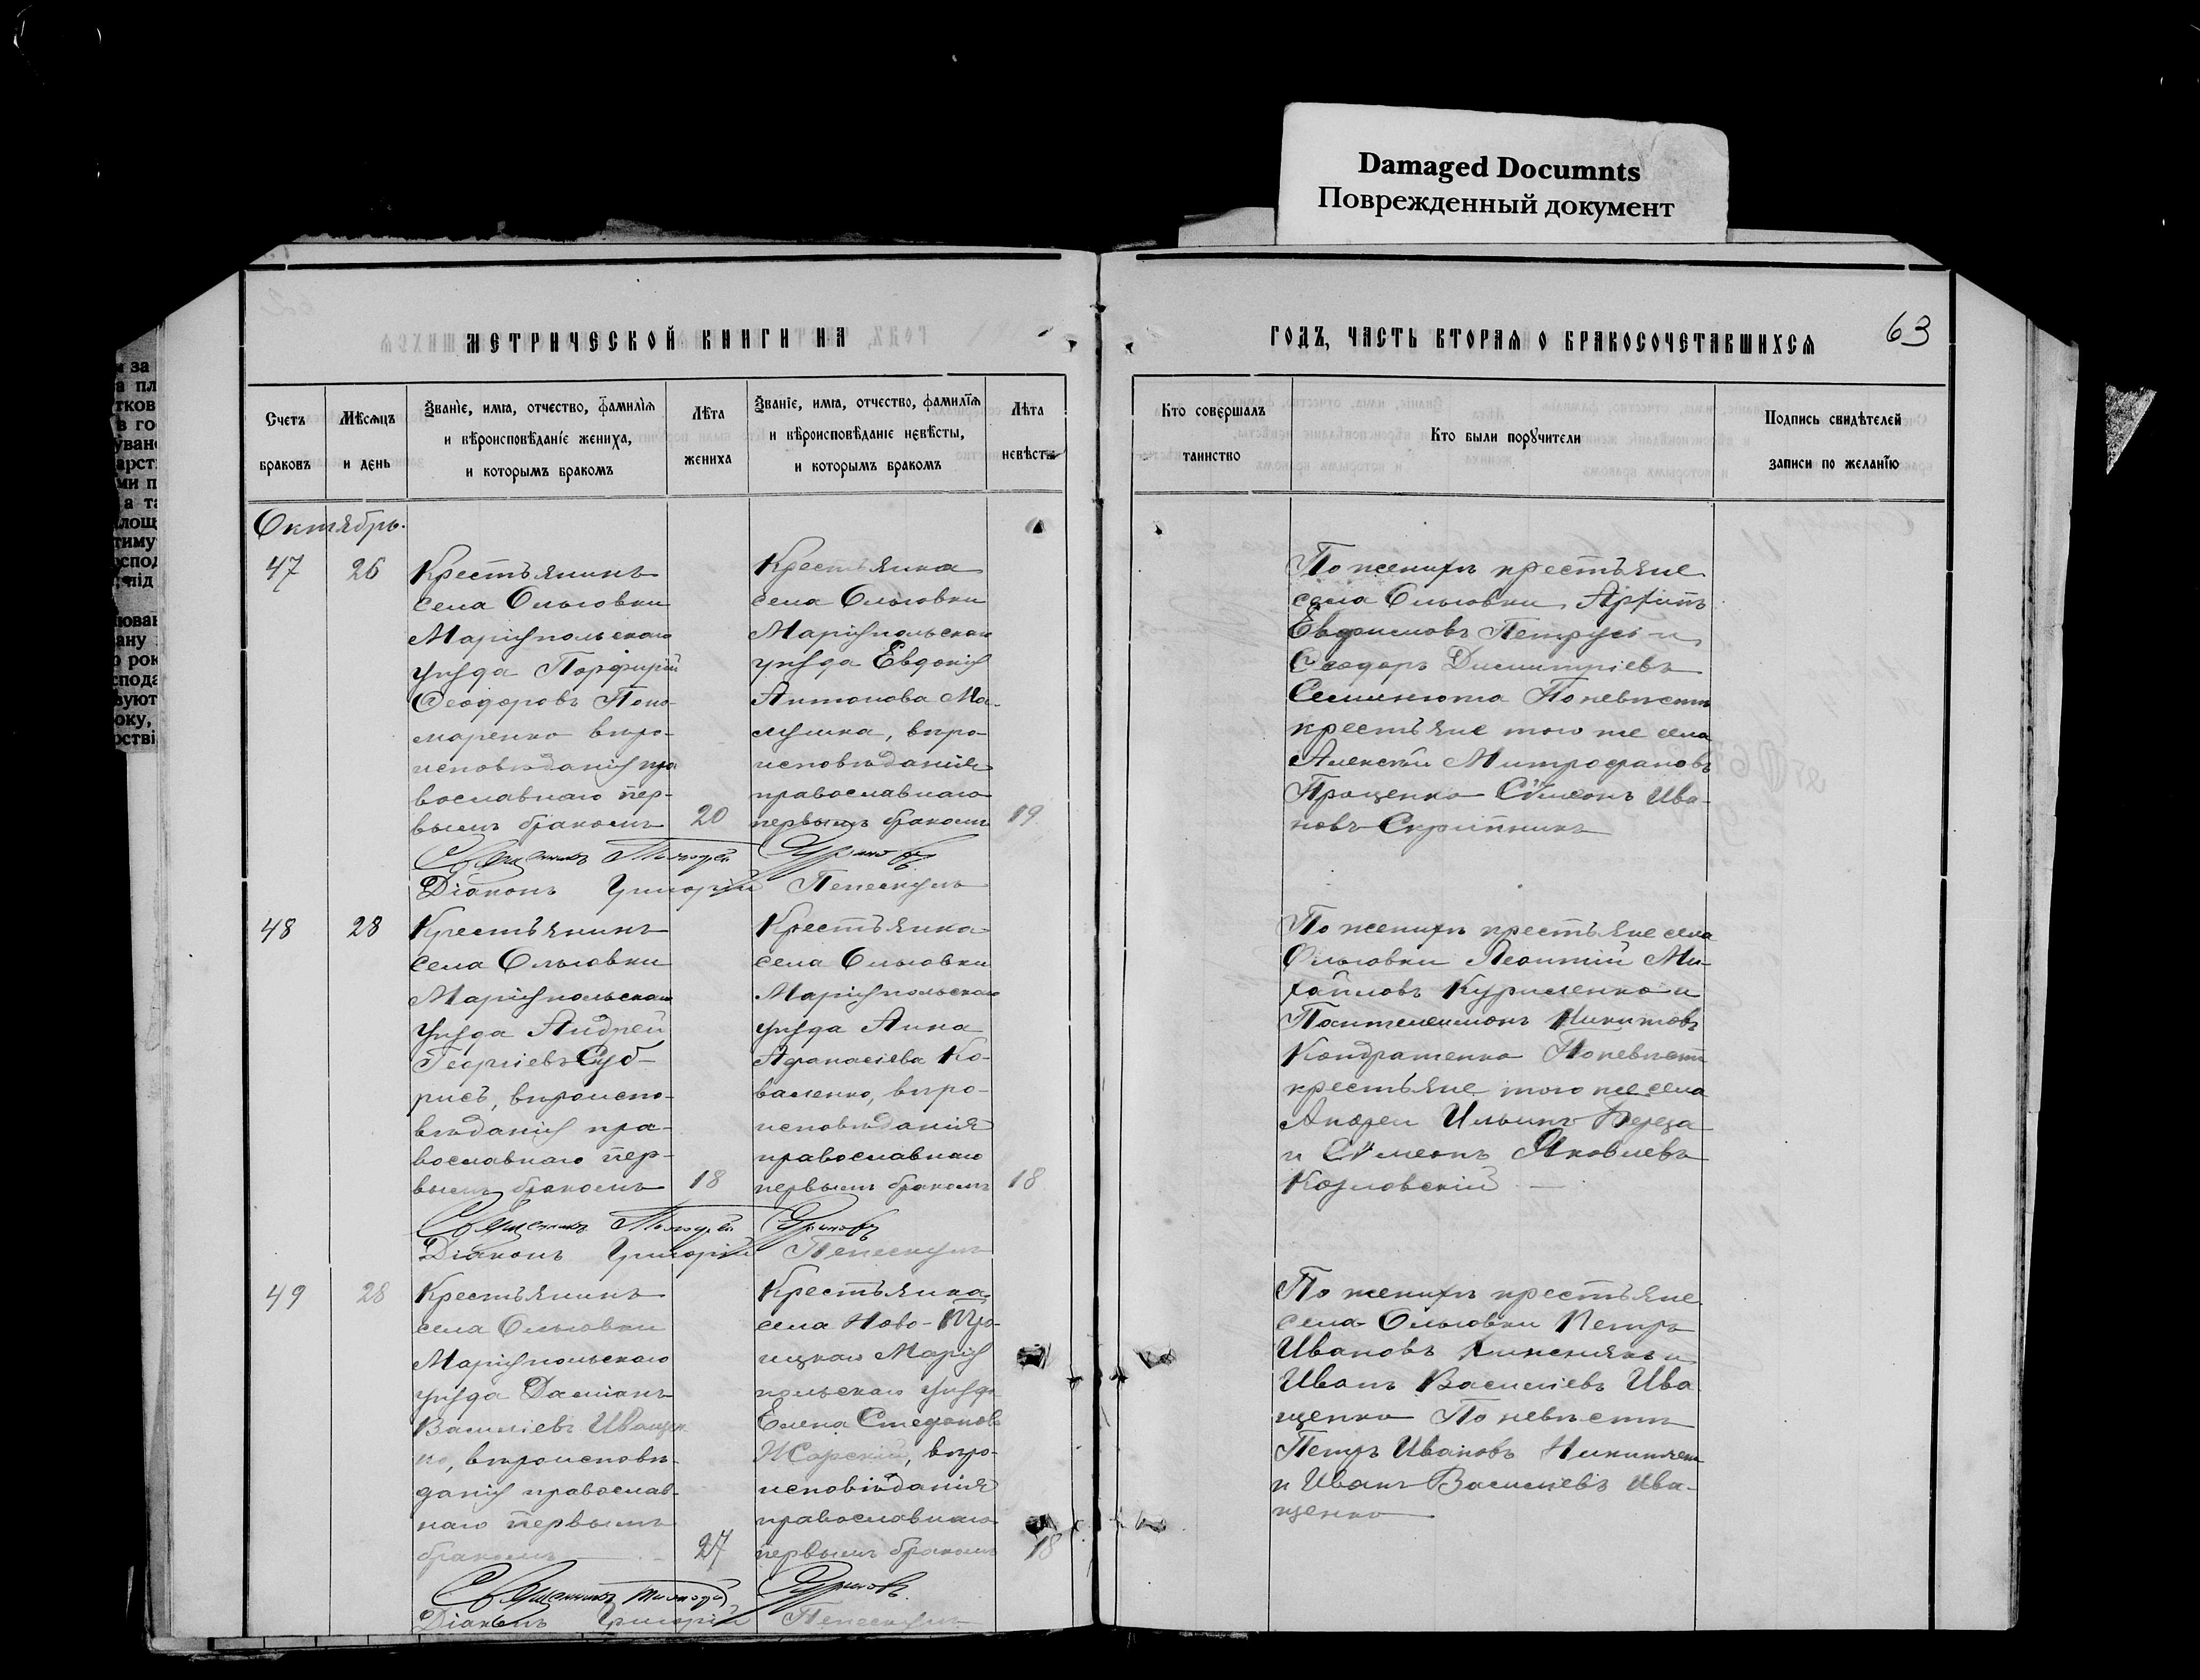 Damaged Documnts
Поврежденный документ
МЕТРИЧЕСКОЙ КНИГИ НА
ГОДЪ, ЧАСТЬ ВТОРАЯ О БРАКОСОЧЕТАВШИХСЯ
63
Счетъ браковъ
Мѣсяцъ и день
Званіе, имя, отчество, фамилія
и вѣроисповѣданіе жениха,
и которымъ бракомъ
Лѣта жениха
Званіе, имя, отчество, фамилія
и вѣроисповѣданіе невѣсты,
и которымъ бракомъ
Лѣта невѣсты
Кто совершалъ таинство
Кто были поручители
Подпись свидѣтелей записи по желанію
Октябрь.
47
26
Крестьянинъ
села Ольговки
Маріупольскаго
уѣзда Порфирій
Ѳеодоровъ Поно-
маренко вѣро-
исповѣданія пра
вославнаго пер-
вымъ бракомъ
20
Крестьянка
села Ольговки
Маріупольскаго
уѣзда Евдокія
Антонова Ма-
, вѣро-
исповѣданія
православнаго
первымъ бракомъ
19
По женихѣ крестьяне
села Ольговки Архипъ
Петрусь и
Ѳеодоръ Димитріевъ
Семинюта По невѣстѣ
крестьяне того же села
Алексѣй Митрофановъ
Проценко Сѵмеонъ Ива-
новъ Скрипникъ
Священникъ
Діаконъ Григорій
48
28
Крестьянинъ
села Ольговки
Маріупольскаго
уѣзда Андрей
Георгіевъ Суб-
, вѣроиспо-
вѣданія пра-
вославнаго пер-
вымъ бракомъ
18
Крестьянка
села Ольговки
Маріупольскаго
уѣзда Анна
Афанасіева Ко-
валенко, вѣро-
исповѣданія
православнаго
первымъ бракомъ
18
По женихѣ крестьяне села
Ольговки Леонтій Ми-
хайловъ Курченко и
Пантелеимонъ Никитовъ
Кондратенко По невѣстѣ
крестьяне того же села
Андрей Ильинъ Береза
и Сѵмеонъ Яковлевъ
Козловскій
Священникъ
Діаконъ Григорій
49
28
Крестьянинъ
села Ольговки
Маріупольскаго
уѣзда Даміанъ
Василіевъ Иващен
ко, вѣроисповѣ-
данія православ-
наго первымъ
бракомъ
27
Крестьянка
села Ново-Тро-
ицкаго Маріу
польскаго уѣзда
Елена Стефанов
, вѣро-
исповѣданія
православнаго
первымъ бракомъ
18
По женихѣ крестьяне
села Ольговки Петръ
Ивановъ и
Иванъ Василіевъ Ива
щенко По невѣстѣ
Петръ Ивановъ
и Иванъ Василіевъ Ива-
щенко
Священникъ
Діаконъ Григорій